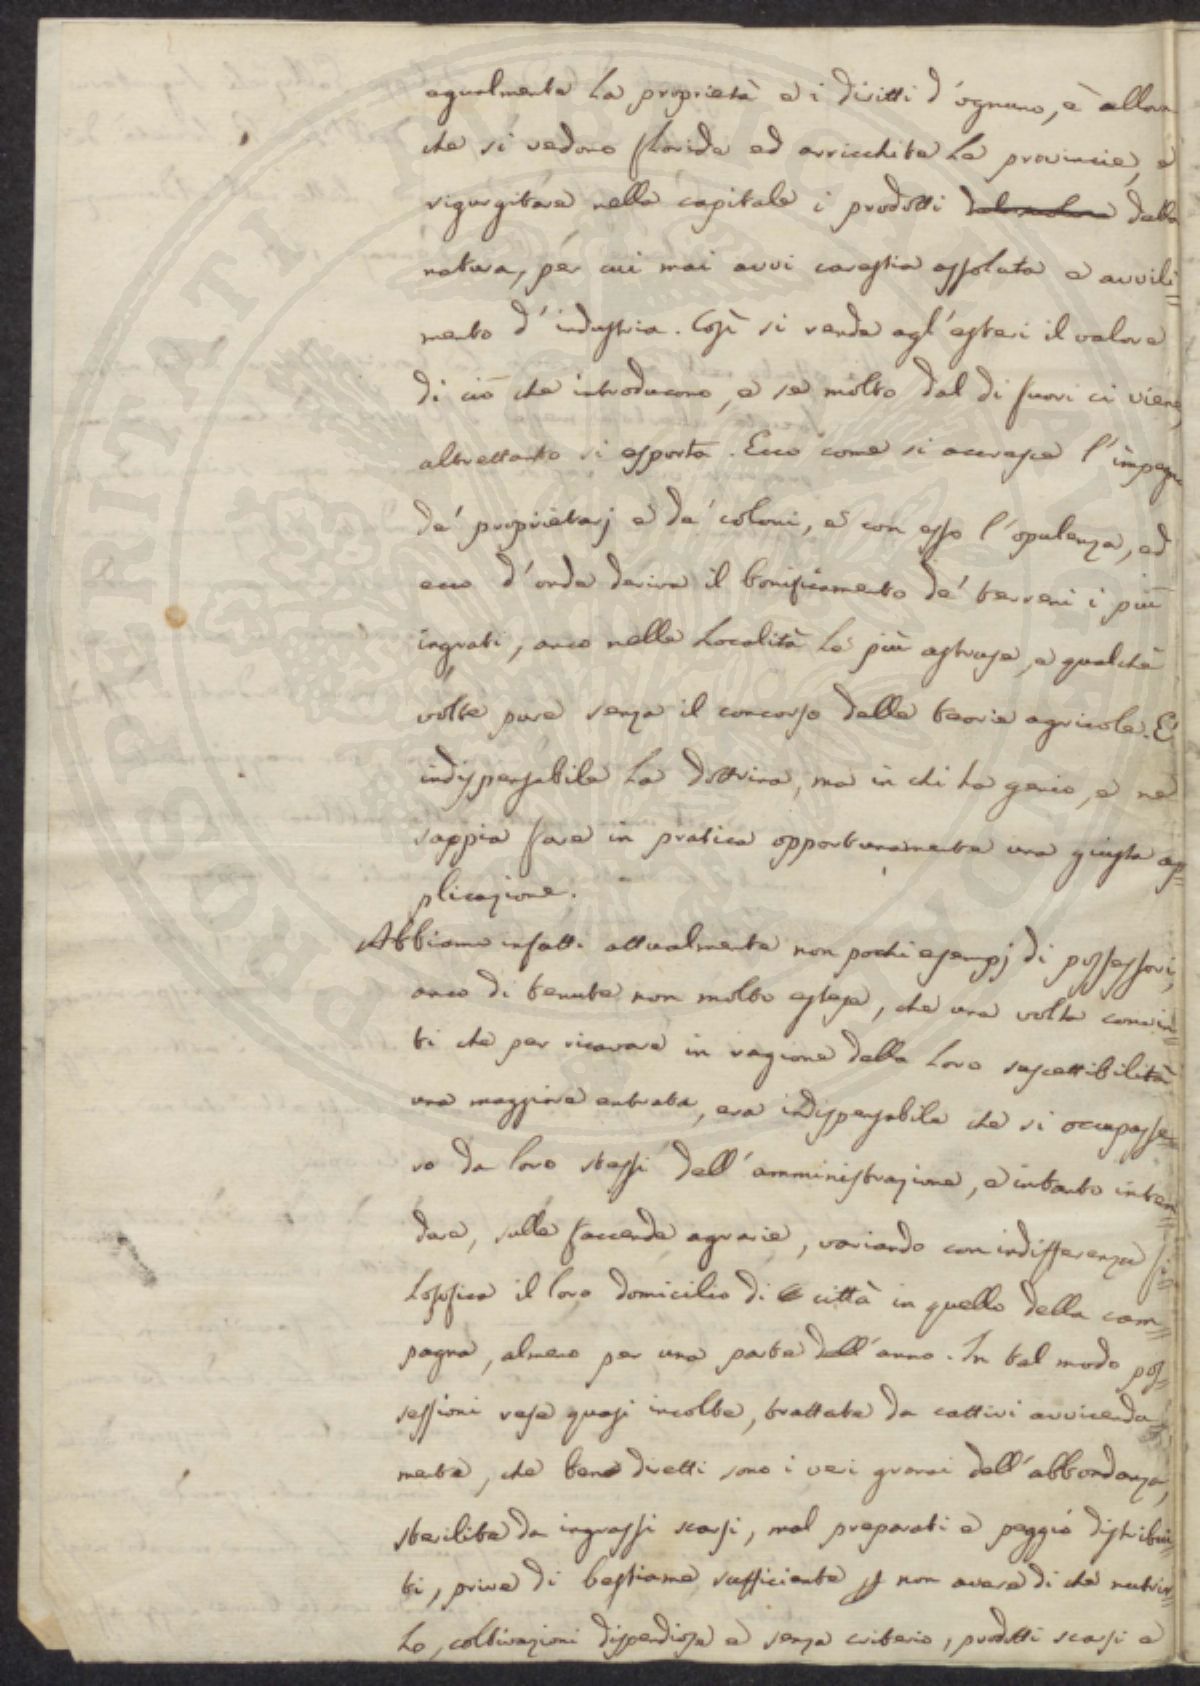 egualmente la proprietà e i diritti d'ognuno, è allora
che si vedono floride ed arricchite le provincie, e
rigurgitare nella capitale i prodotti della
natura, per cui mai avvi carestia assoluta e avvili=
mento d'industria. Così si rende agl'esteri il valore
di ciò che introducono, e se molto dal di fuori ci viene,
altrettanto si esporta. Ecco come si accresce l'impegno
de' proprietarj e de' coloni, e con esso l'opulenza, ed
ecco d'onde deriva il bonificamento de' terreni i più
ingrati, anco nelle località le più astruse, e qualche
volta pure senza il concorso delle teorie agricole. E'
indispensabile la dottrina, ma in chi ha genio, e ne
sappia fare in pratica opportunamente una giusta ap=
plicazione.
Abbiamo infatti attualmente non pochi esempj di possessori,
anco di tenute non molto estese, che una volta convin=
ti che per ricavare in ragione della loro suscettibilità
una maggiore entrata, era indispensabile che si occupasse=
ro da loro stessi dell'amministrazione, e intanto inten=
dere, sulle faccende agrarie, variando con indifferenza fi=
losofica il loro domicilio di città in quello della cam=
pagna, almeno per una parte dell'anno. In tal modo pos=
sessioni rese quasi incolte, trattate da cattivi avvicenda=
menti, che bene diretti sono i veri granai dell'abbondanza,
sterilite da ingrassi scarsi, mal preparati e peggio distribui=
ti, prive di bestiame sufficiente p non avere di che nutrir=
lo, coltivazioni dispendiose e senza criterio, prodotti scarsi e